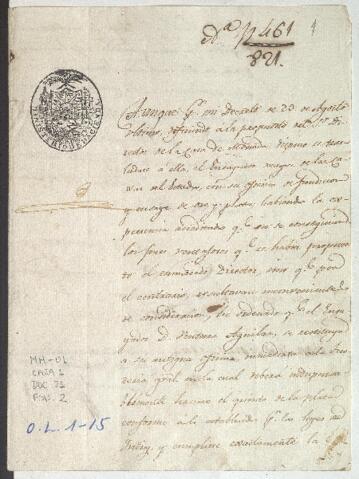 461
821.
Aunque p.r mi Decreto de 23 de Agosto
ultimo, a la propuesta del S.or Di-
rector de la Casa de Moneda, dispuse se tras-
ladase a ella, el Ensayador mayor de las Ca-
xas del Estado, con su oficina de fundicion
y ensaye de oro y plata; habiendo la ex-
periencia acreditado q.e no se consiguieron
los fines ventajosos q.e se habia propues-
to el enunciado Director, sino q.e por
el contrario, resultavan inconvenientes
de consideracion, he ordenado q.e el Ensa-
yador D. Ventura Aguilar, se restituya
a su antigua oficina inmediata a la Teso-
reria gral. en la cual debera indispen-
sablemente hacerse el quinto de la plata
conforme a lo establecido p.r las leyes de
Indias, y cumplirse exactamente la
MH-01
CAJA 1
DOC 71
FOJS. 2
O.L. 1-15